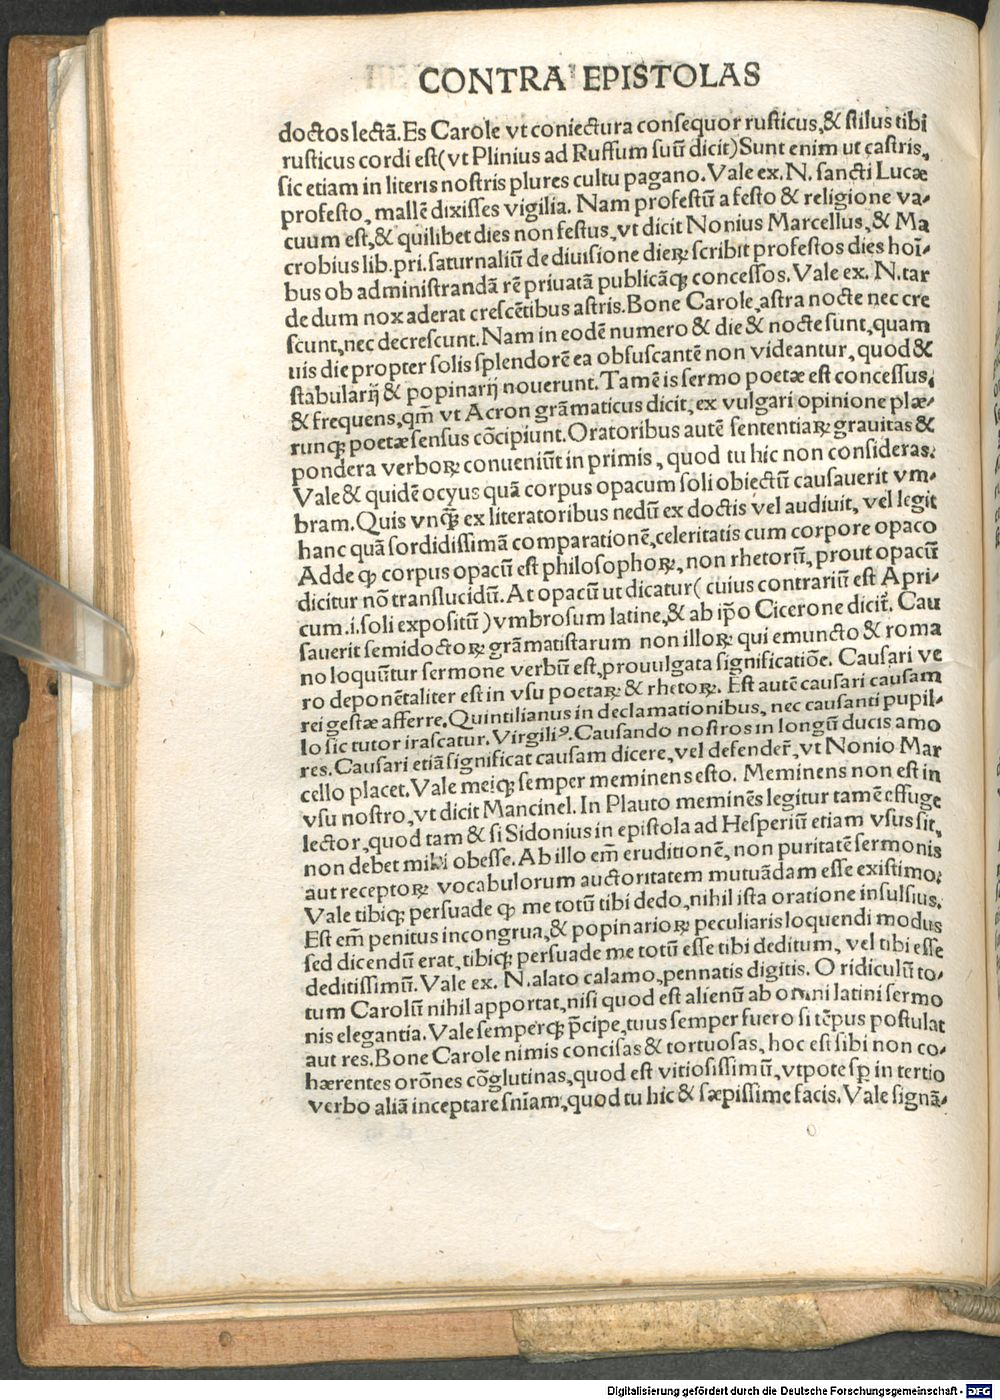 CONTRA EPISTOLAS
doctos lectā. Es Carole vt coniectura consequor rusticus, & stilus tibi
rusticus cordi est (vt Plinius ad Ruffum suū dicit) Sunt enim ut castris,
sic etiam in literis nostris plures cultu pagano. Vale ex. N. sancti Lucæ
profesto, mallē dixisses vigilia. Nam profestū a festo & religione va-
cuum est, & quilibet dies non festus, vt dicit Nonius Marcellus, & Ma
crobius lib. pri. saturnaliū de diuisione dieꝝ scribit profestos dies hoī-
bus ob administrandā rē priuatā publicāqꝫ concessos. Vale ex. N. tar
de dum nox aderat crescētibus astris. Bone Carole, astra nocte nec cre
scunt, nec decrescunt. Nam in eodē numero & die & nocte sunt, quam
uis die propter solis splendorē ea obfuscantē non videantur, quod &
stabularij & popinarij nouerunt. Tamē is sermo poetæ est concessus,
& frequens, qm̄ vt Acron grāmaticus dicit, ex vulgari opinione plæ-
runqꝫ poetæ sensus cōcipiunt. Oratoribus autē sententiaꝝ grauitas &
pondera verboꝝ conueniūt in primis, quod tu hic non consideras.
Vale & quidē ocyus quā corpus opacum soli obiectū causauerit vm-
bram. Quis vnqꝫ̄ ex literatoribus nedū ex doctis vel audiuit, vel legit
hanc quā sordidissimā comparationē, celeritatis cum corpore opaco
Adde ꝙ corpus opacū est philosophoꝝ, non rhetorū, prout opacū
dicitur nō translucidū. At opacū ut dicatur (cuius contrariū est Apri-
cum .i. soli expositū) vmbrosum latine, & ab ip̄o Cicerone dicit᷑. Cau
sauerit semidoctoꝝ grāmatistarum non illoꝝ qui emuncto & roma
no loquūtur sermone verbū est, prouulgata significatiōe. Causari ve
ro deponētaliter est in vsu poetaꝝ & rhetoꝝ. Est autē causari causam
rei gestæ afferre. Quintilianus in declamationibus, nec causanti pupil-
lo sic tutor irascatur. Virgiliꝰ. Causando nostros in longū ducis amo
res. Causari etiā significat causam dicere, vel defender̄, vt Nonio Mar
cello placet. Vale meiqꝫ semper meminens esto. Meminens non est in
vsu nostro, vt dicit Mancinel. In Plauto meminēs legitur tamē effuge
lector, quod tam & si Sidonius in epistola ad Hesperiū etiam vsus sit,
non debet mihi obesse. Ab illo em̄ eruditionē, non puritatē sermonis
aut receptoꝝ vocabulorum auctoritatem mutuādam esse existimo.
Vale tibiqꝫ persuade ꝙ me totū tibi dedo, nihil ista oratione insulsius.
Est em̄ penitus incongrua, & popinarioꝝ peculiaris loquendi modus
sed dicendū erat, tibiqꝫ persuade me totū esse tibi deditum, vel tibi esse
deditissimū. Vale ex. N. alato calamo, pennatis digitis. O ridiculū to-
tum Carolū nihil apportat, nisi quod est alienū ab omni latini sermo
nis elegantia. Vale semperqꝫ p̄cipe, tuus semper fuero si tēpus postulat
aut res. Bone Carole nimis concisas & tortuosas, hoc est sibi non co-
hærentes orōnes cōglutinas, quod est vitiosissimū, vtpote sp̄ in tertio
verbo aliā inceptare sn̄iam, quod tu hic & sæpissime facis. Vale signā-
Digitalisierung gefördert durch die Deutsche Forschungsgemeinschaft - DFG